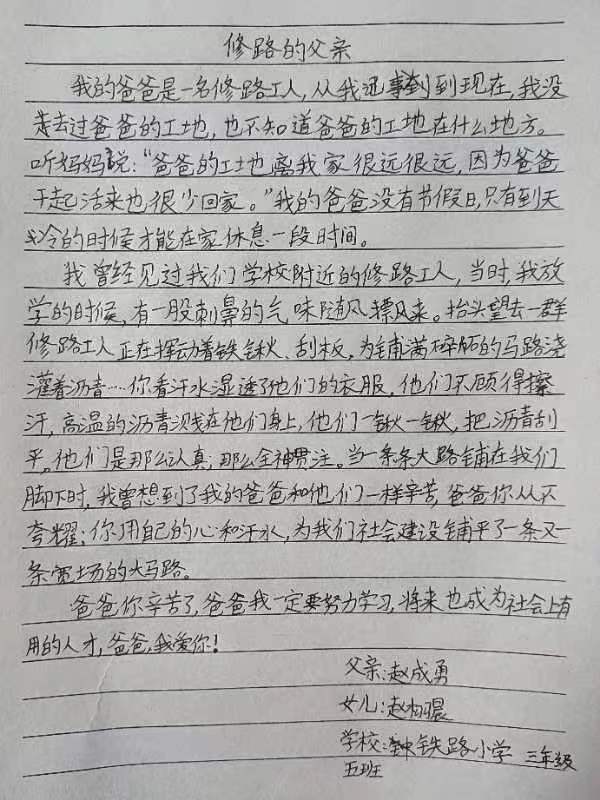 修路的父亲
我的爸爸是一名修路工人,从我记事到到现在,我没
走去过爸爸的工地,也不知道爸爸的工地在什么地方。
听妈妈说:“爸爸的工地离我家很远很远,因为爸爸
干起活来也很少回家。”我的爸爸没有节假日,只有到天
冷的时候才能在家休息一段时间。
我曾经见过我们学校附近的修路工人,当时,我放
学的时候,有一股刺鼻的气味随风飘风来。抬头望去一群
修路工人正在挥动着铁锹、刮板,为铺满碎石的马路浇
灌着沥青……你看汗水湿透了他们的衣服,他们不顾得擦
汗,高温的沥青溅在他们身上,他们一锹一锹,把沥青刮
平。他们是那么认真;那么全神贯注。当一条条大路铺在我们
脚下时,我曾想到了我的爸爸和他们一样辛苦,爸爸你从不
夸耀;你用自己的心和汗水,为我们社会建设铺平了一条又一
条宽场的大马路。
爸爸你辛苦了,爸爸我一定要努力学习,将来也成为社会上有
用的人才,爸爸,我爱你!
父亲:赵成勇
女儿:赵
学校:铁路小学 三年级
五班